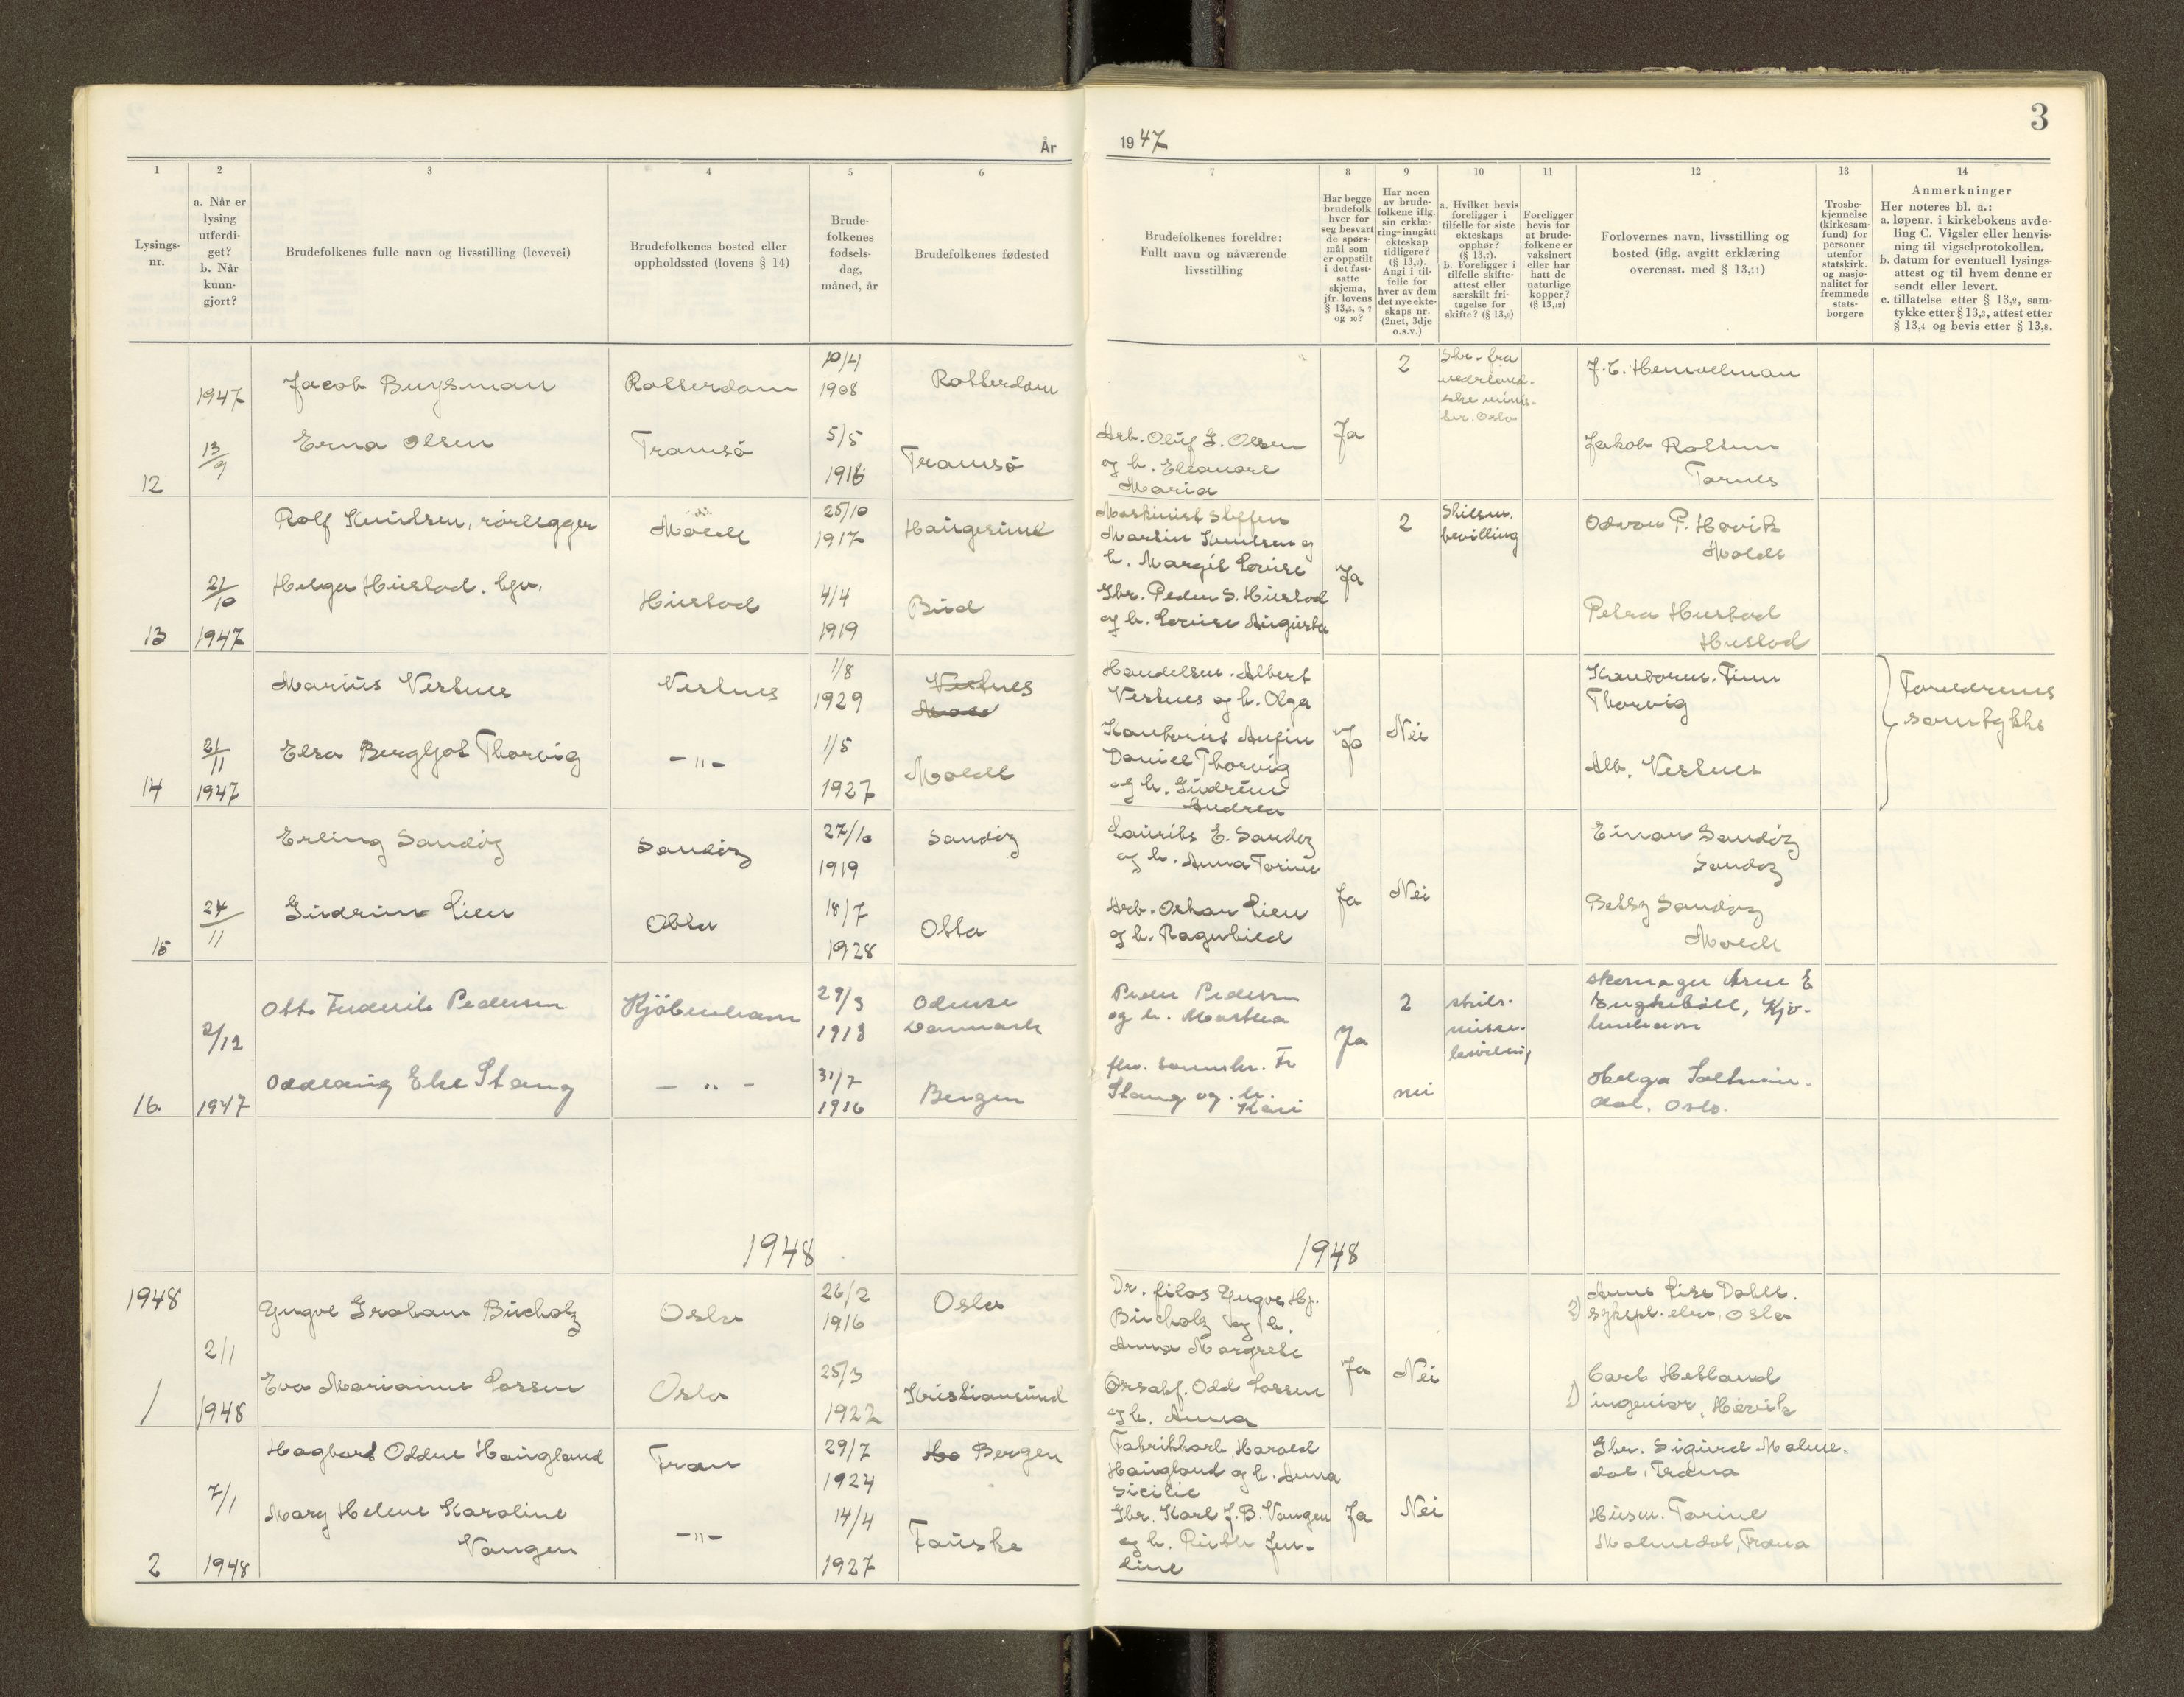 3
År 1947
1
2
3
4
5
6
7
8
9
10
11
12
13
14
Lysings-
nr.
a. Når er
lysing
utferdi-
get?
b. Når
kunn-
gjort?
Brudefolkenes fulle navn og livsstilling (levevei)
Brudefolkenes bosted eller
oppholdssted (lovens § 14)
Brude-
folkenes
fødsels-
dag,
måned, år
Brudefolkenes fødested
Brudefolkenes foreldre:
Fullt navn og nåværende
livsstilling
Har begge
brudefolk
hver for
seg besvart
de spørs-
mål som
er oppstilt
i det fast-
satte
skjema,
jfr. lovens
§ 13,5, 6, 7
og 10?
Har noen
av brude-
folkene iflg.
sin erklæ-
ring inngått
ekteskap
tidligere?
(§ 13,7).
Angi i til-
felle for
hver av dem
det nye ekte-
skaps nr.
(2net, 3dje
o.s.v.)
a. Hvilket bevis
foreligger i
tilfelle for siste
ekteskaps
opphør?
(§ 13,7).
b. Foreligger i
tilfelle skifte-
attest eller
særskilt fri-
tagelse for
skifte? (§ 13,9)
Foreligger
bevis for
at brude-
folkene er
vaksinert
eller har
hatt de
naturlige
kopper?
(§ 13,12)
Forlovernes navn, livsstilling og
bosted (iflg. avgitt erklæring
overensst. med § 13,11)
Trosbe-
kjennelse
(kirkesam-
fund) for
personer
utenfor
statskirk.
og nasjo-
nalitet for
fremmede
stats-
borgere
Anmerkninger
Her noteres bl. a.:
a. løpenr. i kirkebokens avde-
ling C. Vigsler eller henvis-
ning til vigselprotokollen.
b. datum for eventuell lysings-
attest og til hvem denne er
sendt eller levert.
c. tillatelse etter § 13,2, sam-
tykke etter § 13,3, attest etter
§ 13,4 og bevis etter § 13,8.
12
1947
13/9
Jacob Buysman
Rotterdam
10/4
1908
Rotterdam
2
Skr. fra
nederland-
ske minis-
ter. Oslo
Erna Olsen
Tromsö
5/5
1916
Tromsö
Arb. Oluf G. Olsen
og h. Eleanore
Maria
Ja
Jakob Rotsun
Tornes
13
21/10
1947
Rolf Knudsen, rörlegger
Molde
25/10
1917
Haugesund
Maskinist Steffen
Martin Knudsen og
h. Margit Louise
Ja
2
Skilsm.
bevilling
Odvar P. Hovik
Molde
Helga Hustad.
Hustad
4/4
1919
Bud
Gbr. Peder S. Hustad
og h. Louise Augusta
Petra Hustad
Hustad
14
21/11
1947
Marius Vestnes
Vestnes
1/8
1929
Vestnes
Molde
Handelsm. Albert
Vestnes og h. Olga
Ja
Nei
Kontorm. Finn
Thorvig
Foreldrenes
samtykke
Elsa Bergljot Thorvig
- " -
1/5
1927
Molde
Kontorist Anfin
Daniel Thorvig
og h. Gudrun
Andrea
Alb. Vestnes
15
24/11
Erling Sandöy
Sandöy
27/10
1919
Sandöy
Laurits E. Sandöy
og h. Anna Torine
Ja
Nei
Einar Sandöy
Sandöy
Gudrun Lien
Otta
18/7
1928
Otta
Arb. Oskar Lien
og h. Ragnhild
Betsy Sandöy
Molde
16.
2/12
1947
Otto Frederik Pedersen
Kjöbenhavn
29/3
1913
Odense
Danmark
Peder Pedersen
og h. Martha
Ja
2
skils-
misse-
bevilling
skomager Arne E
Kjö-
benhavn
Oddlaug Else Stang
- " -
31/7
1916
Bergen
Stang og h.
Kari
nei
Helga
dal, Oslo.
1948
1948
1948
1
2/1
1948
Yngve Graham Bucholz
Oslo
26/2
1916
Oslo
Dr. filos Yngve Hj.
Bucholz og h.
Anna Margrete
Ja
Nei
2)
Anne Lise Dahle.
sykepl. elev, Oslo
Eva Marianne Lossen
Oslo
25/3
1922
Kristiansund
Orsakf. Odd Lossen
og h. Anna
1)
Carl Hetland
ingeniør, Hövik
2
7/1
1948
Hagbard Oddne Haugland
Fræn
29/7
1924
Ho Bergen
Fabrikkarb. Harald
Haugland og h. Anna
Sicilie
Ja
Nei
Gbr. Sigurd Malme-
dal, Fræna
Mary Helene Karoline
Vangen
- " -
14/4
1927
Fauske
Gbr. Karl J. B. Vangen
og h. Ruth Jen-
sine
Husm. Torine
Malmedal, Fræna